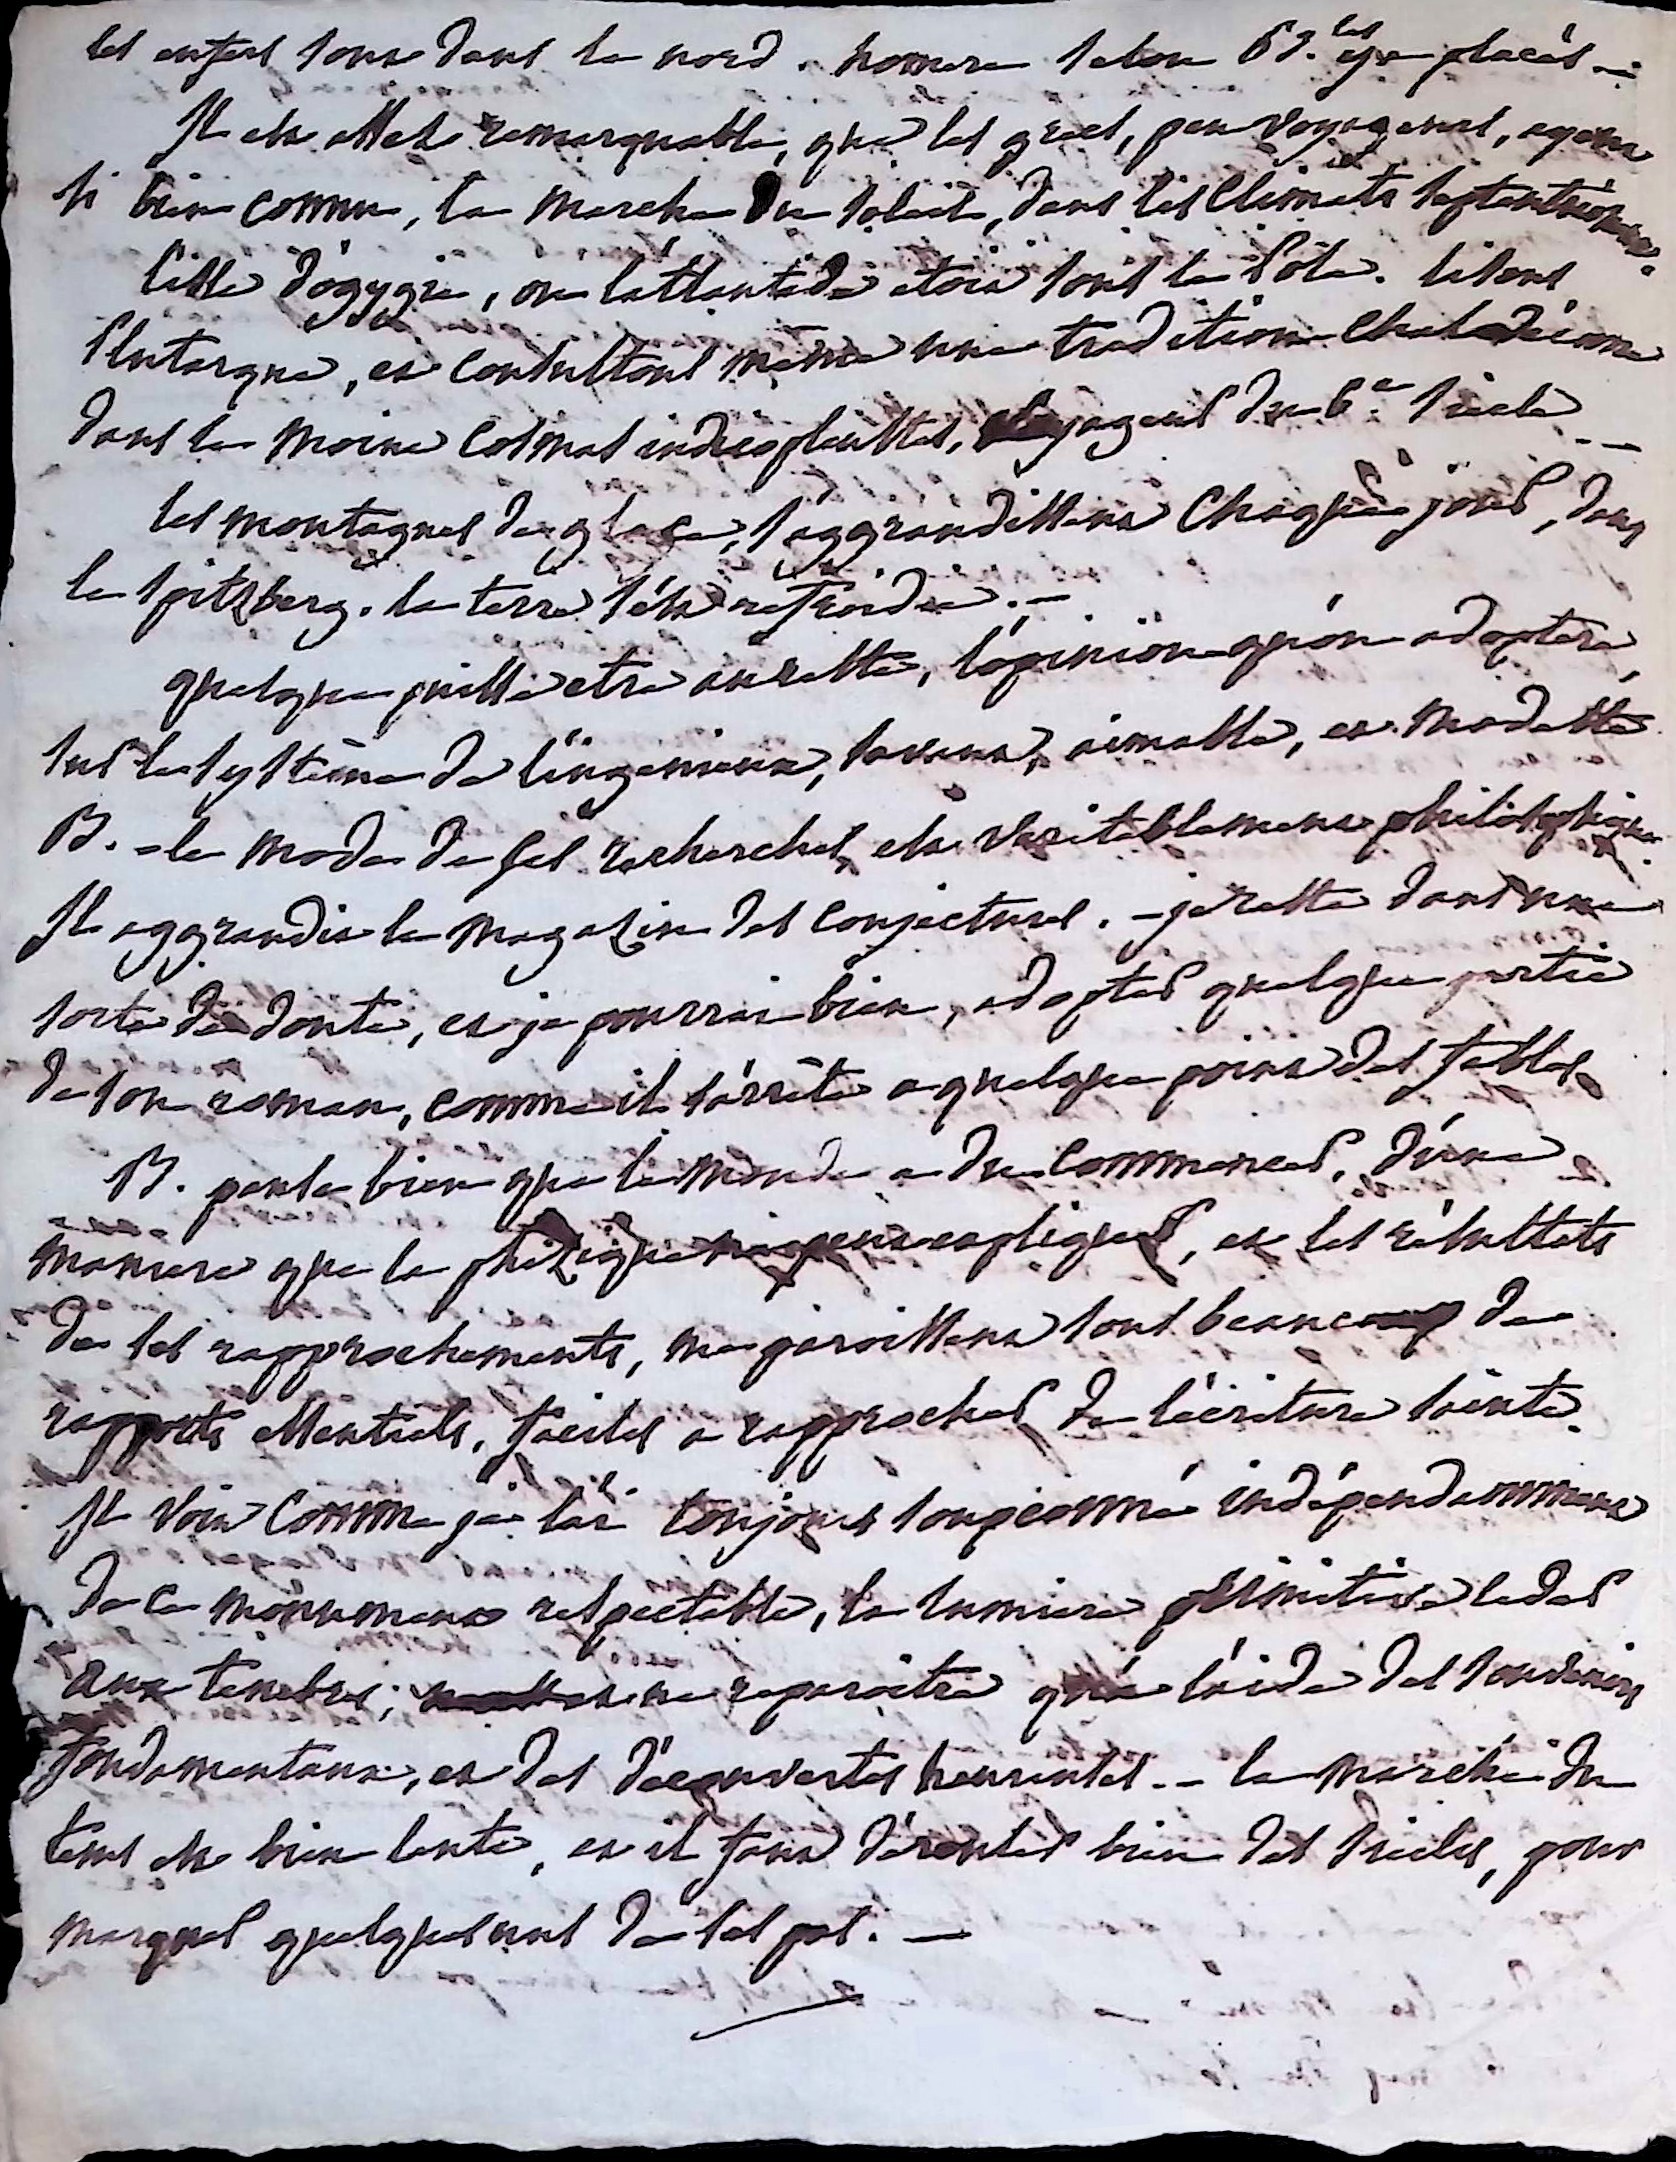 les enfers sont dans le nord. homere selon B. les y a placés. -
Il est assez remarquable, que les grecs, peu voyageurs, ayent
si bien connu, la marche du soleil, dans les climats septentrionaux.
l'isle d'ogygie, ou l'atlantide etoit sous le Pôle. lisons
Plutarque, et consultons même une tradition chaldéenne
dans le moine Cosmas indicopleustes, voyageur du 6e. siecle --
les montagnes de glace, s'aggrandissent chaque jour, dans
le spitzberg. la terre s'est refroidie. -
quelque puisse etre au reste, l'opinion qu'on adoptera,
sur le systême de l'ingenieux, savant, aimable, et modeste
B. - le mode de ses recherches, est veritablement philosophique.
Il aggrandit le magasin des conjectures. - je reste dans une
sorte de doute, et je pourrai bien, adopter quelque partie
de son roman, comme il s'arrête a quelque point des fables
B. pense bien que le monde a du commencer, d'une
maniere que la phisique n'a peut expliquer, et les résultats
de ses rapprochements, me paroissent sous beaucoup de
rapports essentiels, faciles a rapprocher de l'écriture sainte.
Il voit comme je l'ai toujours soupçonné indépendamment
de ce monument respectable, la lumiere primitive ceder
aux tenebres; et ne reparoitre qu'a l'aide des souvenirs
fondamentaux, et des découvertes heureuses. - la marche du
tems est bien lente, et il faut dérouler bien des siecles, pour
marquer quelques uns de ses pas. -